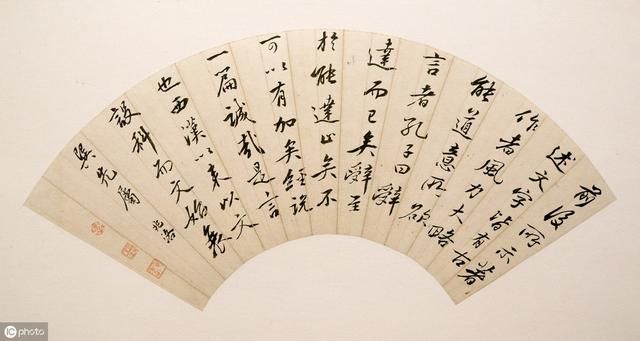 前後所示著
述文字皆有古
作者風力大略
能道意所欲
言者孔子曰辭
達而已矣辭至
於能達止矣不
可以有加矣經說
一篇誠哉是言
也西漢以來以文
設科而文始衰
巽先屬 兆洛
icphoto